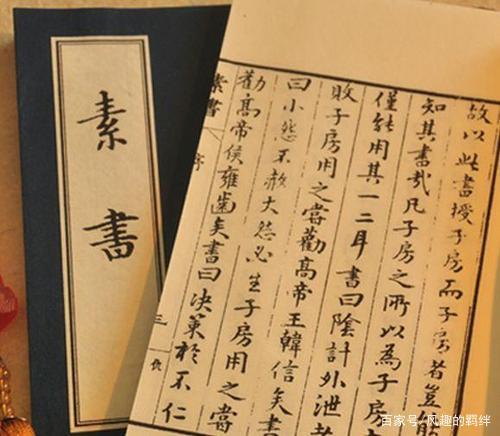 素書
故以此書授子房而子房者豈能
知其書哉凡子房之所以為子房
僅能用其一二耳書曰陰計外泄者
敗子房用之嘗勸高帝王韓信矣書
曰小怨不赦大怨必生子房用之嘗
勸高帝侯雍齒矣書曰決策於不仁
素書 序 三
百家号/风趣的羁绊